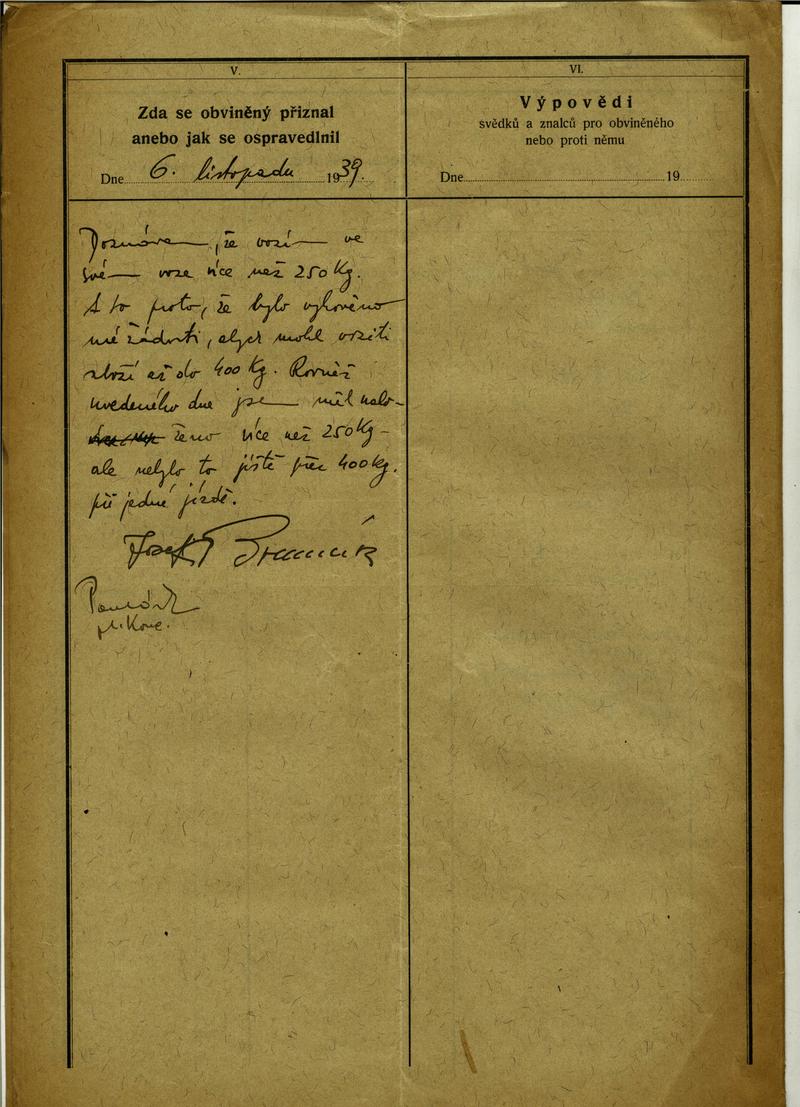 V.
Zda se obviněný přiznal
anebo jak se ospravedlnil
Dne 6. listopadu 1939.
VI.
Výpovědi
svědků a znalců pro obviněného
nebo proti němu
Dne 19
že vozím ve
více než 250 Kg.
A to proto, že bylo vyhověno
mé žádosti, abych mohl voziti
zboží až do 400 Kg. Rovněž
uvedeného dne jsem měl nalo-
ženo více než 250 Kg -
ale nebylo to jistě přes 400 kg.
při jedné jízdě.
Josef